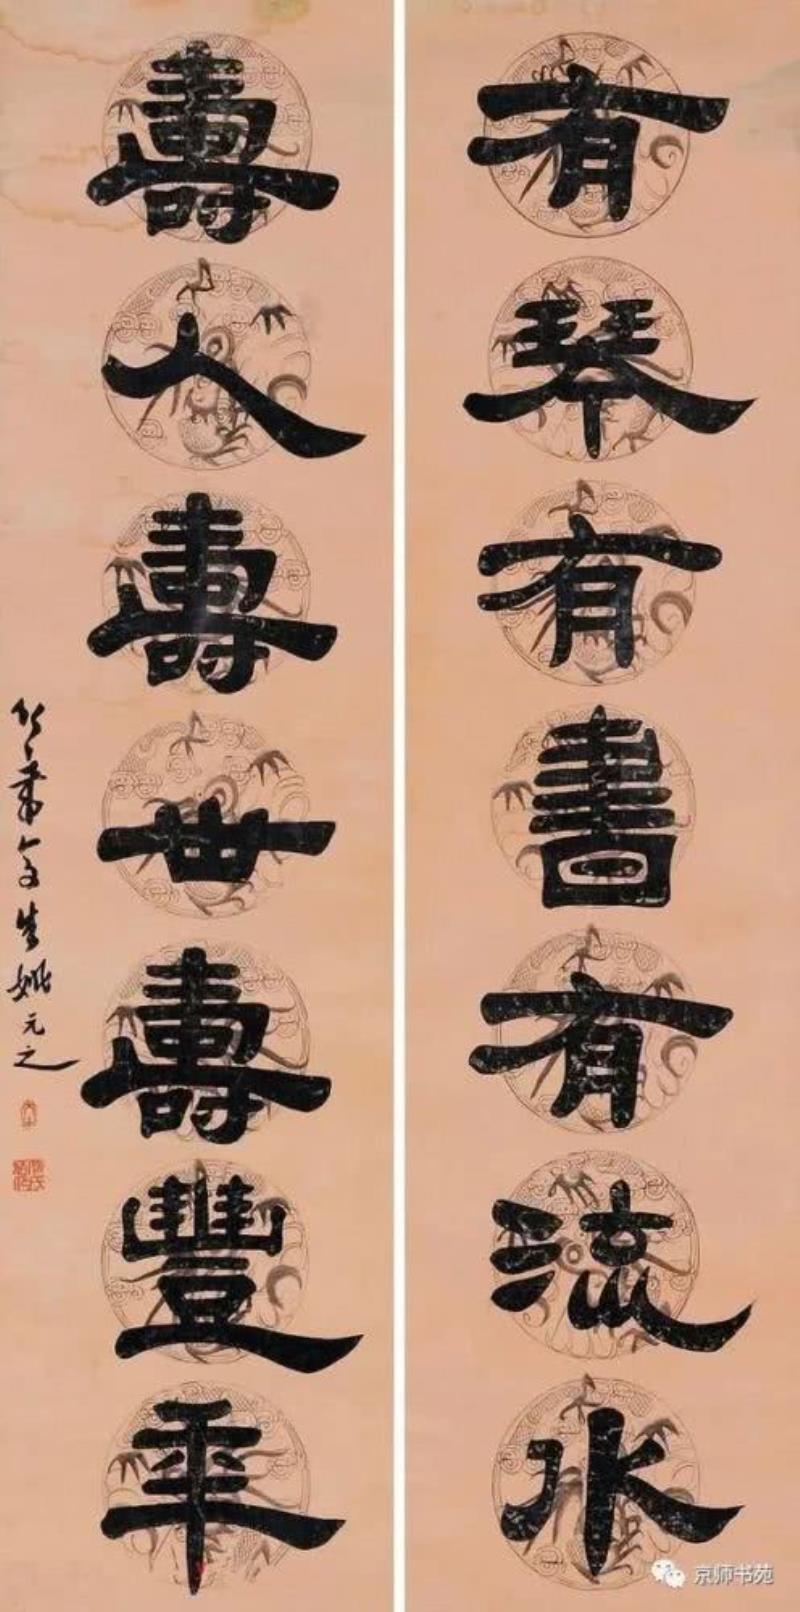 有琴有書有流水
壽人壽世壽豐年
姚元之
京师书苑